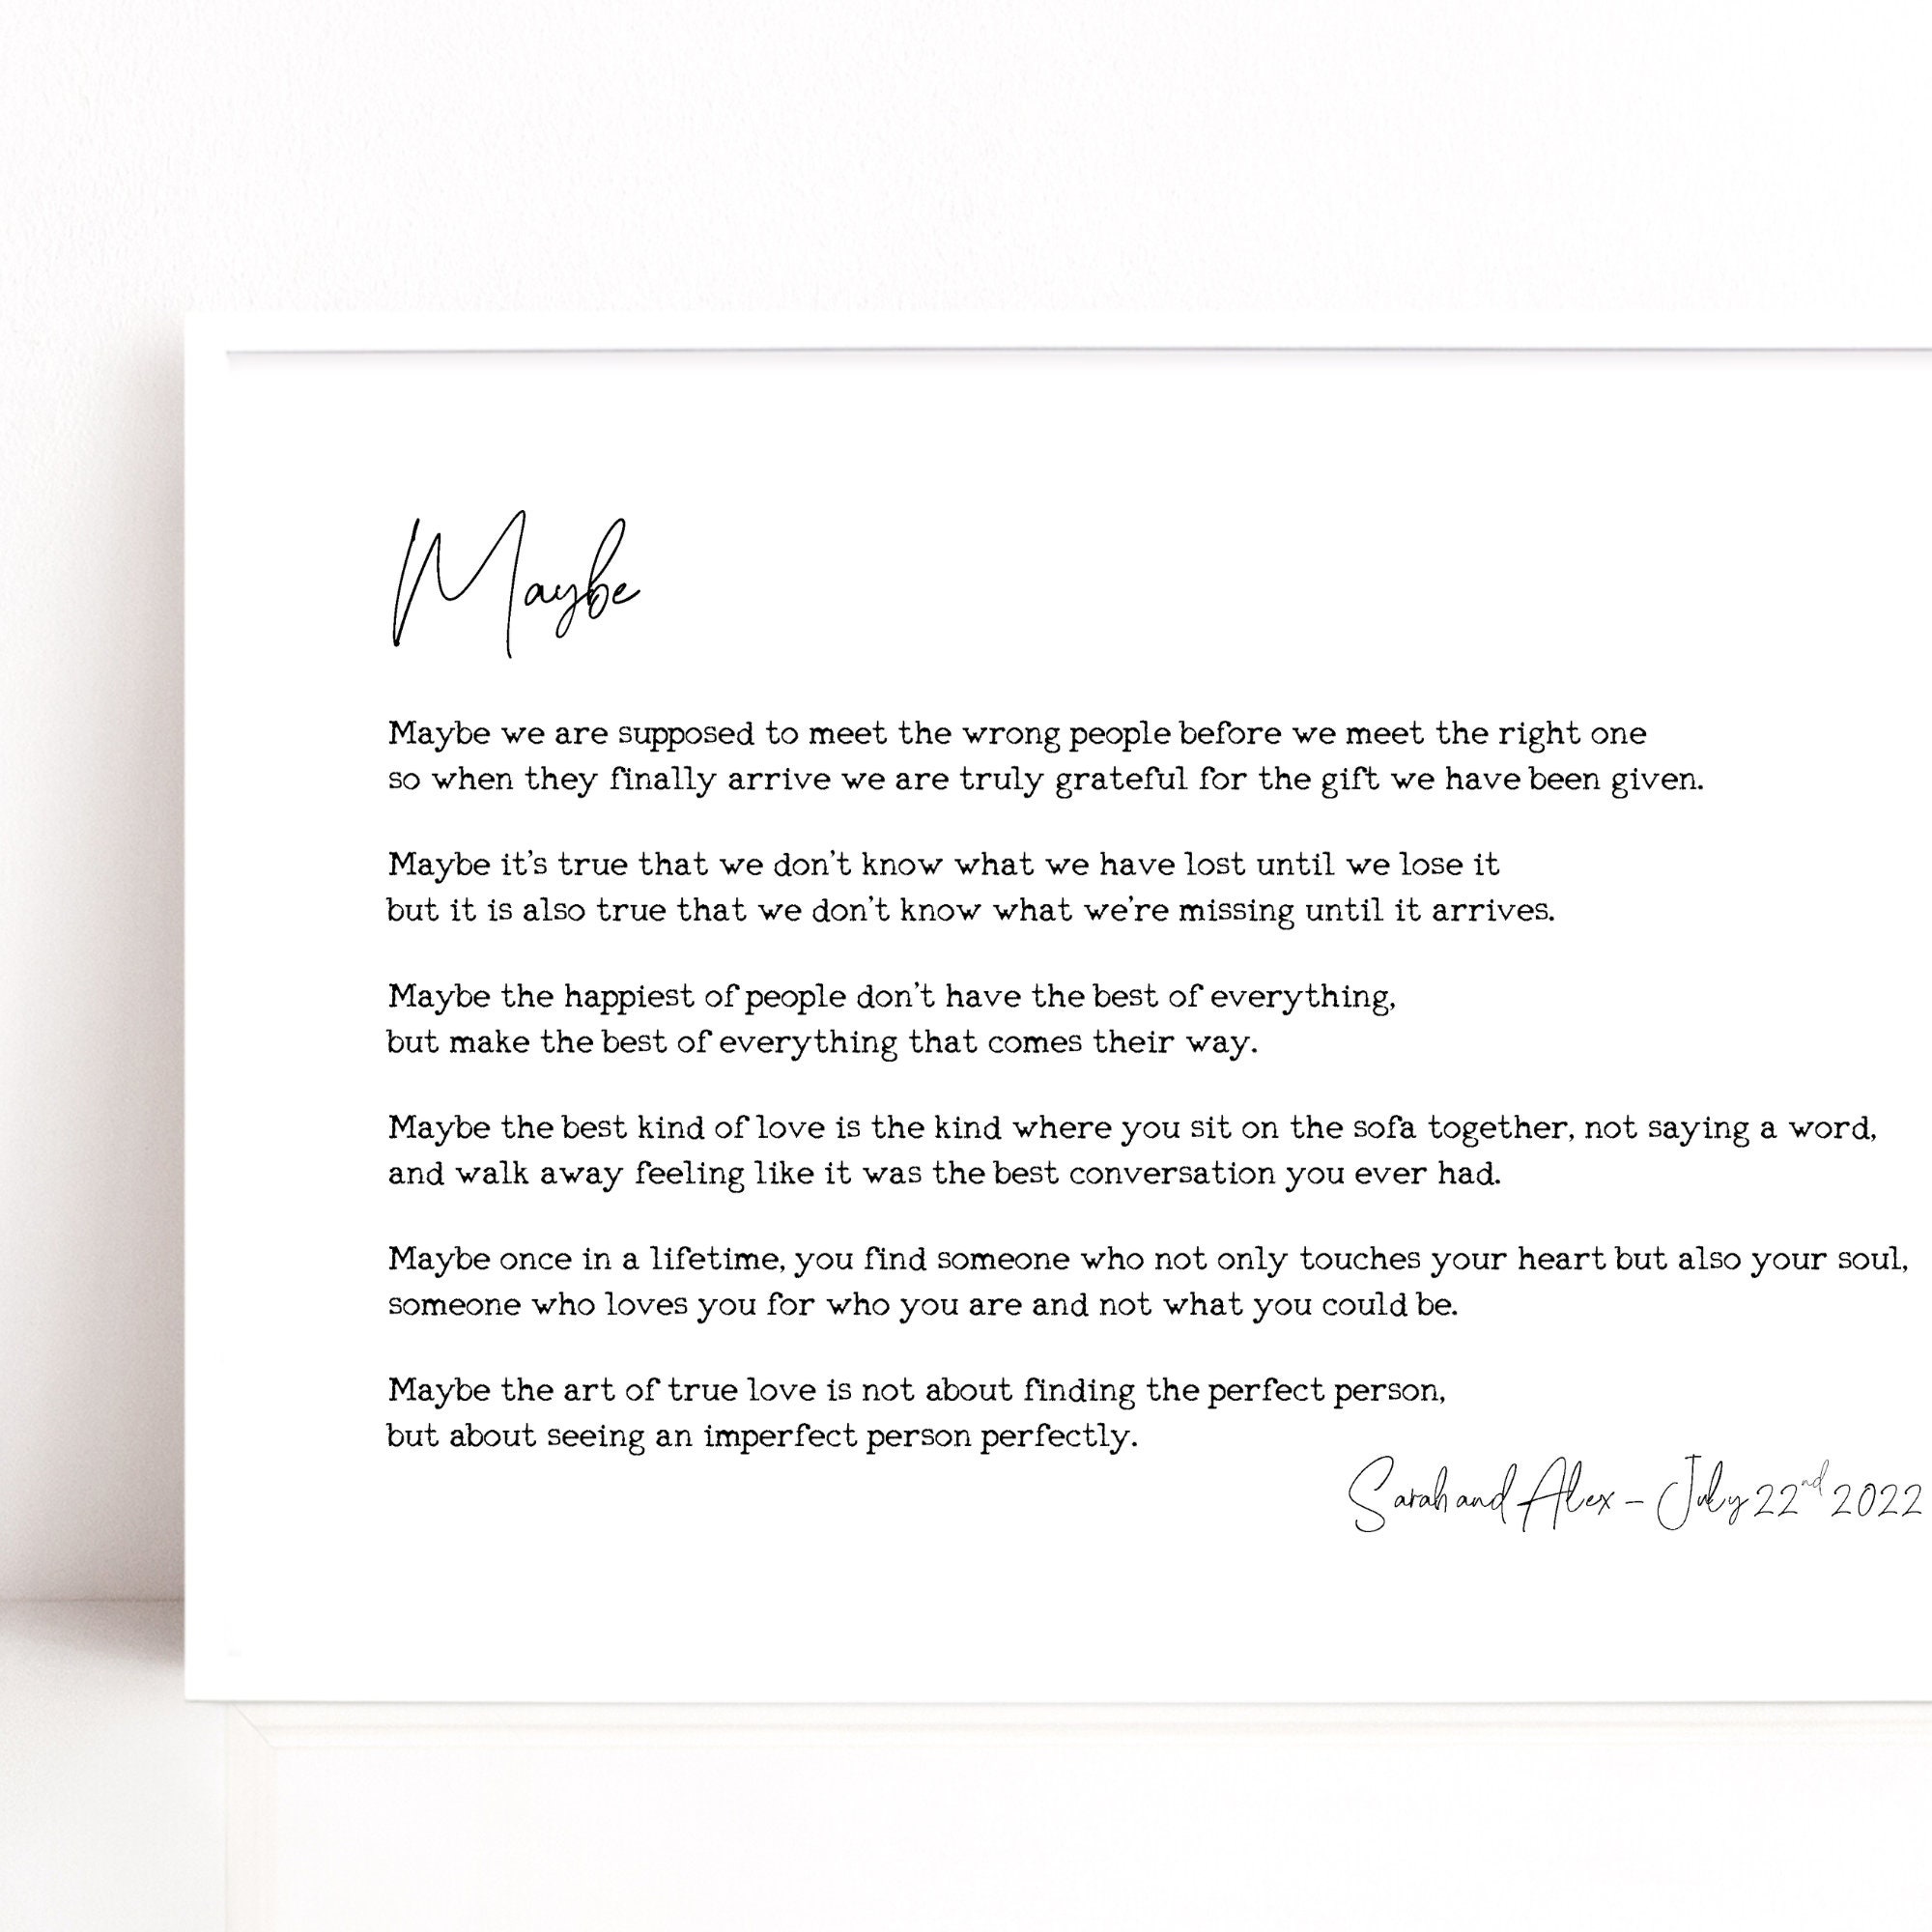 Maybe
Maybe we are supposed to meet the wrong people before we meet the right one
so when they finally arrive we are truly grateful for the gift we have been given.
Maybe it's true that we don't know what we have lost until we lose it
but it is also true that we don't know what we're missing until it arrives.
Maybe the happiest of people don't have the best of everything,
but make the best of everything that comes their way.
Maybe the best kind of love is the kind where you sit on the sofa together, not saying a word,
and walk away feeling like it was the best conversation you ever had.
Maybe once in a lifetime, you find someone who not only touches your heart but also your soul,
someone who loves you for who you are and not what you could be.
Maybe the art of true love is not about finding the perfect person,
but about seeing an imperfect person perfectly.
Sarah and Alex - July 22nd 2022